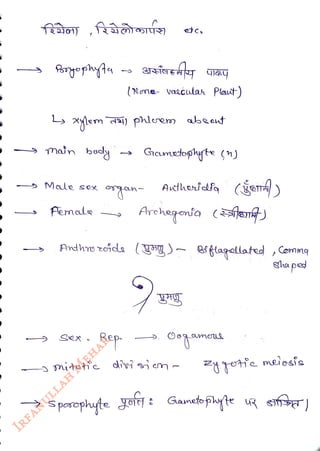 रिसेला , रिसेलोकार्पस etc.
→ Bryophyta → असंवहनीय पादप
(None-vascular Plant)
↳ xylem तथा phloem absent
→ main body → Gametophyte (n)
→ Male sex organ - Antheridia (पुंधानी)
→ Female → Archegonia (स्त्रीधानी)
→ Androzoids (पुमणु) - Biflagellated , Comma shaped
पुमणु
→ Sex. Rep. → Oogamous
→ mitotic division - Zygotic meiosis
→ Sporophyte पूर्णतः Gametophyte पर आश्रित।
IRFANULLAH